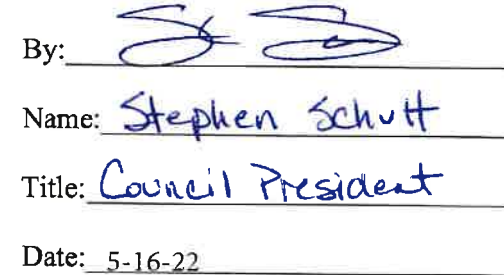 By:
Name: Stephen Schutt
Title: Council President
Date: 5-16-22